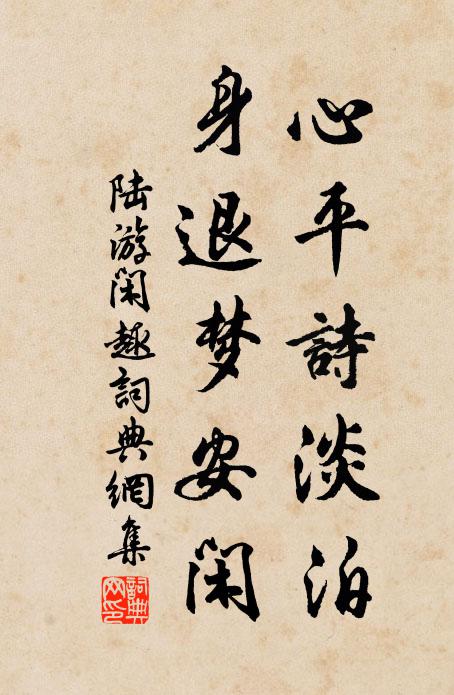 心平詩淡泊
身退梦安闲
陆游闲趣詞典網集
詞典网印